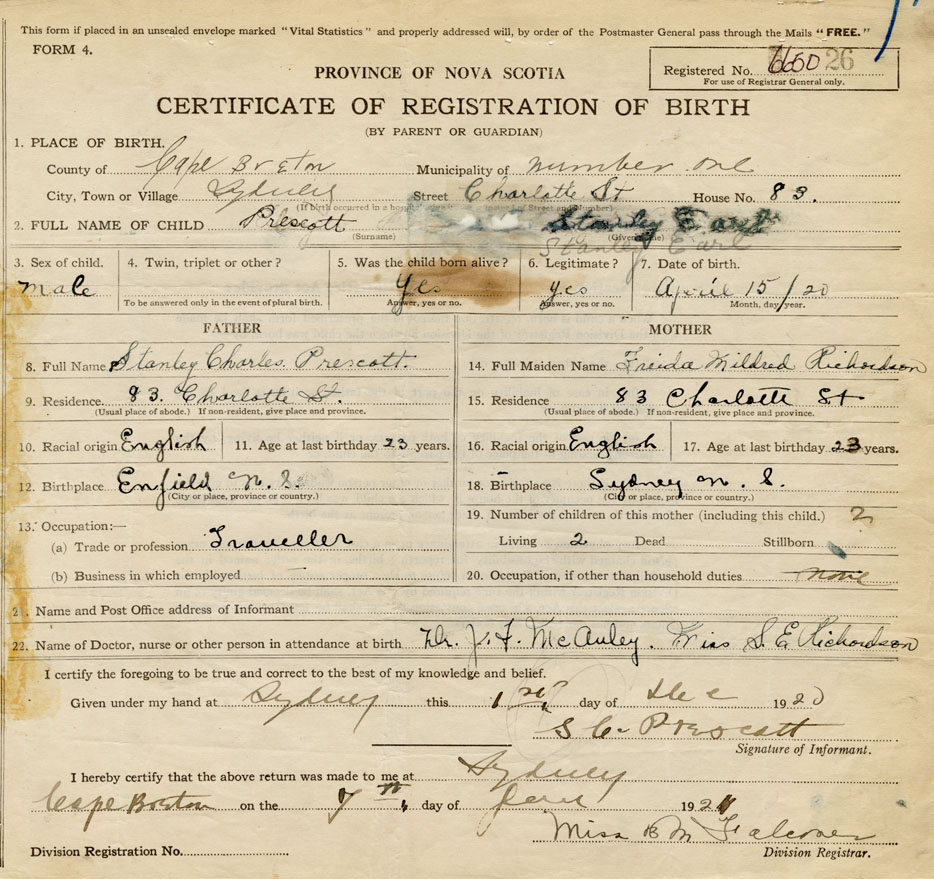 This form if placed in an unsealed envelope marked "Vital Statistics" and properly addressed will, by order of the Postmaster General pass through the Mails "FREE."
FORM 4.
PROVINCE OF NOVA SCOTIA
Registered No. 26
For use of Registrar General only.
CERTIFICATE OF REGISTRATION OF BIRTH
(BY PARENT OR GUARDIAN)
1. PLACE OF BIRTH.
County of Cape Breton Municipality of number one
City, Town or Village Sydney Street Charlotte St House No. 83.
(If birth occurred in a Street and Number)
2. FULL NAME OF CHILD Prescott Stanley Earl
(Surname) (Given
Stanley Earl
3. Sex of child. 4. Twin, triplet or other? 5. Was the child born alive? 6. Legitimate? 7. Date of birth.
male Yes yes April 15/20
To be answered only in the event of plural birth. Answer, yes or no. Answer, yes or no. Month, day, year.
FATHER MOTHER
8. Full Name Stanley Charles Prescott. 14. Full Maiden Name Freida Mildred Richardson
9. Residence 83. Charlotte St. 15. Residence 83 Charlotte St
(Usual place of abode.) If non-resident, give place and province. (Usual place of abode.) If non-resident, give place and province.
10. Racial origin English 11. Age at last birthday 23 years. 16. Racial origin English 17. Age at last birthday 23 years.
12. Birthplace Enfield N. S. 18. Birthplace Sydney N. S.
(City or place, province or country.) (City or place, province or country.)
13. Occupation:— 19. Number of children of this mother (including this child.) 2
(a) Trade or profession Traveller Living 2 Dead Stillborn
(b) Business in which employed — 20. Occupation, if other than household duties none
21. Name and Post Office address of Informant
22. Name of Doctor, nurse or other person in attendance at birth Dr. J. F. McAuley. Miss S. E. Richardson
I certify the foregoing to be true and correct to the best of my knowledge and belief.
Given under my hand at Sydney this day of Dec 1920
S C. Prescott
Signature of Informant.
I hereby certify that the above return was made to me at Sydney
Cape Breton on the 7th day of 1921
Miss B M Falconer
Division Registration No. Division Registrar.